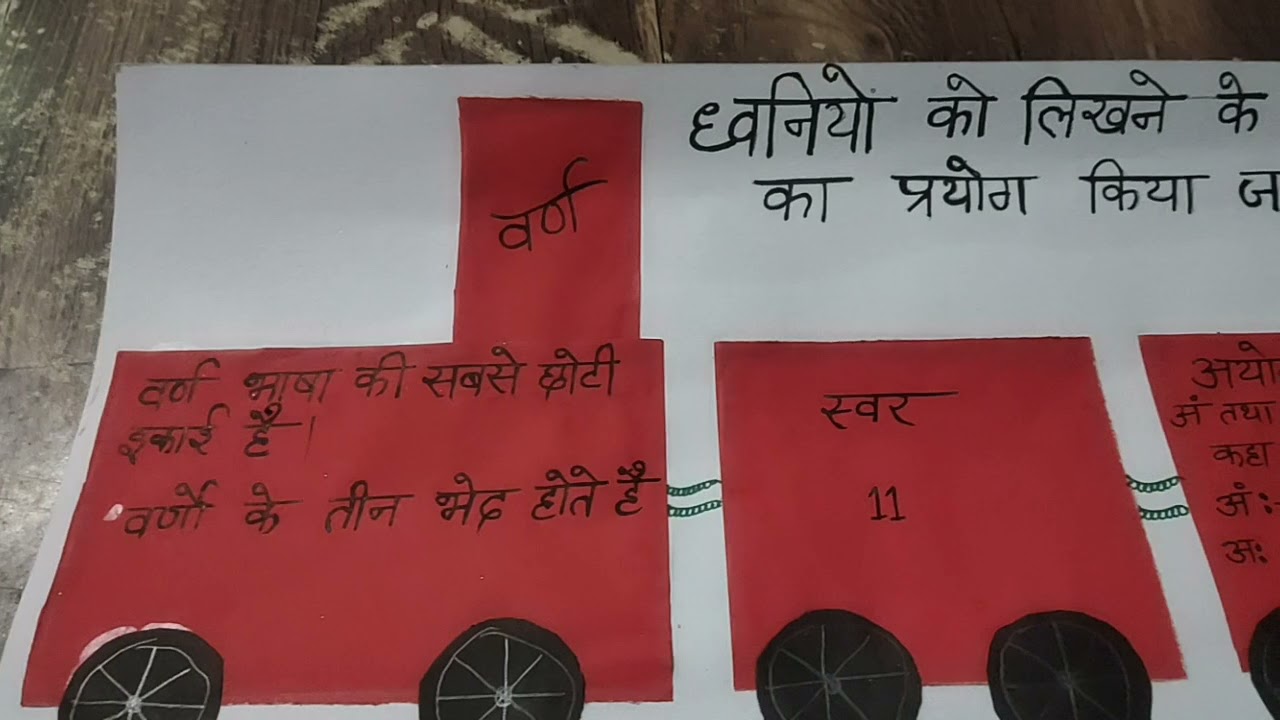 ध्वनियों को लिखने के
का प्रयोग किया ज
वर्ण
वर्ण भाषा की सबसे छोटी
इकाई है।
वर्णों के तीन भेद होते है
स्वर
11
अयो
अं तथा
कहा
अं :
अः